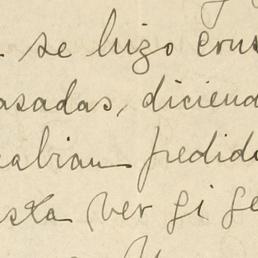 se hizo cons
asadas, diciend
abian pedido
sta ver si ge